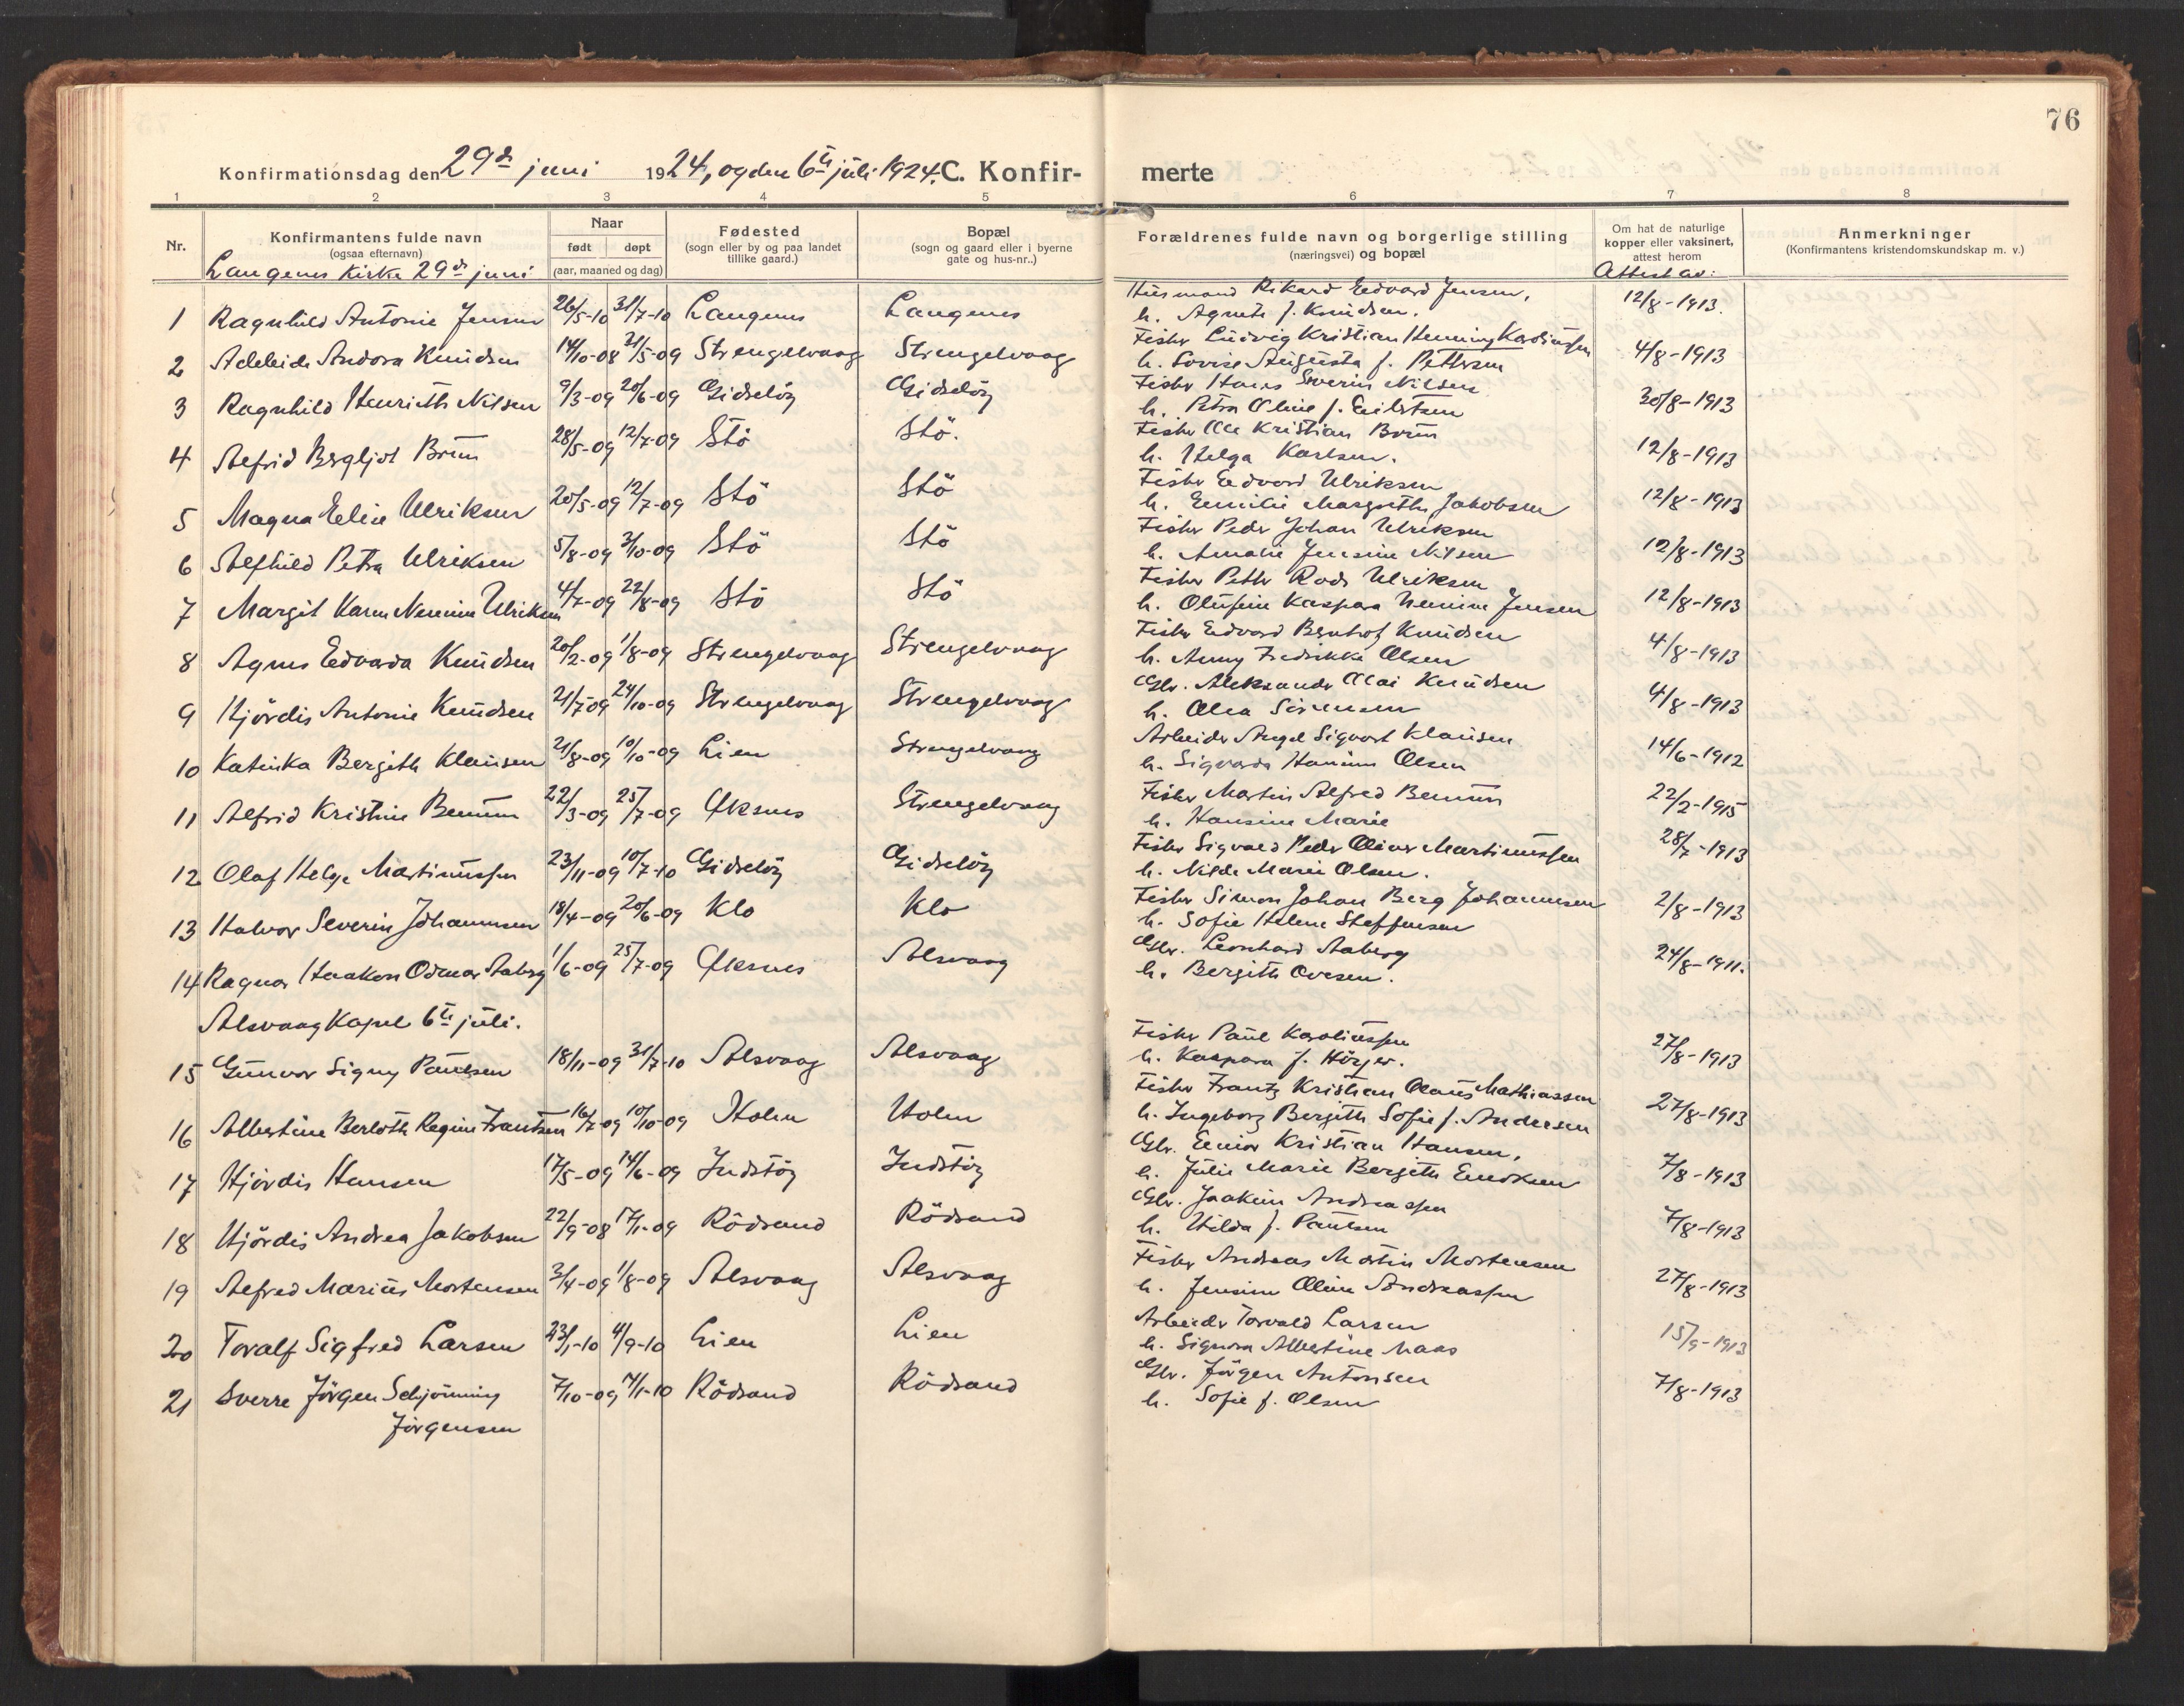 76
Konfirmationsdag den 29de juni 1924, og den 6te juli 1924. C. Konfir- merte
1 2 3 4 5 6 7 8
Nr. Konfirmantens fulde navn (ogsaa efternavn) Naar født døpt (aar, maaned og dag) Fødested (sogn eller by og paa landet tillike gaard.) Bopæl (sogn og gaard eller i byerne gate og hus-nr..) Forældrenes fulde navn og borgerlige stilling (næringsvei) og bopæl Om hat de naturlige kopper eller vaksinert, attest herom Anmerkninger (Konfirmantens kristendomskundskap m. v.)
Langenes Kirke 29de juni Attest av:
1 Ragnhild Antonie Jensen 26/5-10 31/7-10 Langenes Langenes Husmand Rikard Edvard Jensen, 12/8-1913.
h. Agnete f. Knudsen.
2 Adeleide Andora Knudsen 14/10-08 21/5-09 Strengelvaag Strengelvaag Fisker Ludvig Kristian Henning Karoliussen 4/8-1913
h. Lovise Augusta f. Pettersen
3 Ragnhild Henriette Nilsen 9/3-09 20/6-09 Gidselöy Gidselöy Fisker Hans Severin Nilsen 30/8-1913
h. Petra Oline f. Eilertsen
4 Alfrid Bergljot Brun 28/5-09 12/7-09 Stö Stö. Fisker Ole Kristian Brun 12/8-1913
h. Helga Karlsen.
5 Magna Elin Ulriksen 20/5-09 12/7-09 Stö Stö Fisker Edvard Ulriksen 12/8-1913
h. Emilie Margrethe Jakobsen
6 Alfhild Petra Ulriksen 5/8-09 3/10-09 Stö Stö Fisker Peder Johan Ulriksen 12/8-1913
h. Amalie Jensine Nilsen
7 Margit Karen Nennine Ulriksen 4/7-09 22/8-09 Stö Stö Fisker Petter Rods Ulriksen 12/8-1913
h. Olufine Kaspara Nennine Jensen
8 Agnes Edvarda Knudsen 20/2-09 1/8-09 Strengelvaag Strengelvaag Fisker Edvard Bernhof Knudsen 4/8-1913
h. Anny Fredrikke Olsen
9 Hjördis Antonie Knudsen 21/7-09 24/10-09 Strengelvaag Strengelvaag Gbr. Aleksander Olai Knudsen 4/8-1913
h. Olea Sörensen
10 Katinka Bergithe Klausen 21/8-09 10/10-09 Lien Strengelvaag Arbeider Angel Sigvart Klausen 14/6-1912
h. Sigvarda Hanine Olsen
11 Alfrid Kristine Benum 22/3-09 25/7-09 Öksnes Strengelvaag Fisker Martin Alfred Benum 22/2-1915
h. Hansine Marie
12 Olaf Helge Martinussen 23/11-09 10/7-10 Gidselöy Gidselöy Fisker Sigvald Peder Oliver Martinussen 28/7-1913
h. Nilde Marie Olsen.
13 Halvor Severin Johannesen 18/4-09 20/6-09 Klo Klo Fisker Simon Johan Berg Johannesen 2/8-1913
h. Sofie Helene Steffensen
14 Ragnar Haakon Odmar Aaberg 1/6-09 25/7-09 Öksnes Alsvaag Gbr. Leonhard Aaberg 24/8-1911.
h. Bergithe Ovesen.
Alsvaag Kapel 6te juli.
15 Gunvor Signy Paulsen 18/11-09 31/7-10 Alsvaag Alsvaag Fisker Paul Karoliussen 27/8-1913
h. Kaspara f. Höyer.
16 Albertine Berlote Regine Frantzen 16/7-09 10/10-09 Holm Holm Fisker Frantz Kristian Olaus Mathiassen 27/8-1913
h. Ingeborg Bergithe Sofie f. Andersen
17 Hjördis Hansen 17/5-09 14/6-09 Indstöy Indstöy Gbr. Einor Kristian Hansen, 7/8-1913
h. Julie Marie Bergithe Endresen
18 Hjördis Andrea Jakobsen 22/9-08 17/1-09 Rödsand Rödsand Gbr. Joakim Andreassen 7/8-1913
h. Hilda f. Paulsen
19 Alfred Marius Mortensen 3/4-09 1/8-09 Alsvaag Alsvaag Fisker Andreas Martin Mortensen 27/8-1913
h. Jensine Oline Andreassen
20 Toralf Sigfred Larsen 23/1-10 4/9-10 Lien Lien Arbeider Torvald Larsen 15/9-1913
h. Signora Albertine Maas
21 Sverre Jörgen Schjönning 7/10-09 4/1-10 Rödsand Rödsand Gbr. Jörgen Antonsen 7/8-1913
Jörgensen h. Sofie f. Olsen